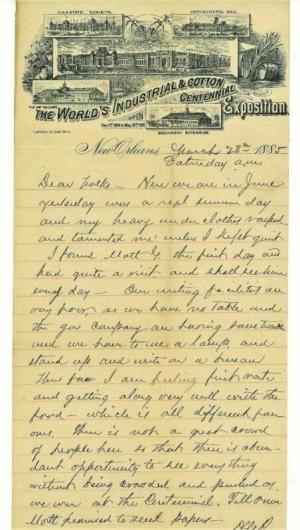 U.S. & STATE EXHIBITS.
HORTICULTURAL HALL.
THE ART GALLERY.
THE WORLD'S INDUSTRIAL & COTTON CENTENNIAL Exposition
OPEN
MACHINERY EXTENSION.
New Orleans, March 28th 1885
Saturday a.m.
Dear Folks - Now we are in June
yesterday was a real summer day
and my heavy under clothes
and tormented me unless I kept quiet
I found Mott G the first day and
had quite a visit and shall see him
every day - Our writing facilities are
very poor, as we have no table and
the gas company are having some trouble
and we have to use a lamp, and
stand up and write on a bureau
Thus far I am feeling first rate
and getting along very well with the
food - which is all different from
ours. There is not a great crowd
of people here so that there is abun-
dant opportunity to see everything
without being crowded and pushed as
we were at the Centennial. Tell
Mott promised to send papers -